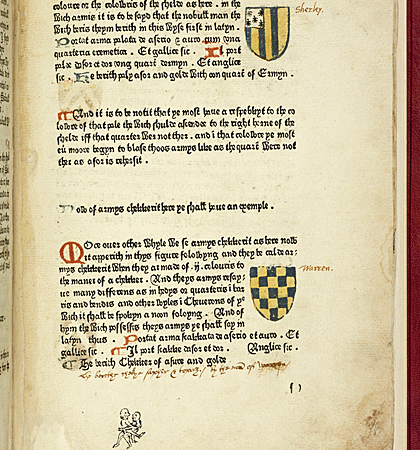 colowre or the colowris of the shelde as here . in the
Wich armis it is to be sayd that the nobull man the
Wich beris theym berith in this Wyse first in latyn .
Portat arma palata de aserio & auro cum vna
quarteria eremetica . Et gallice sic . Il port
pale dasor et dor vng quart dermyn . Et anglice
sic . He berith paly asor and golde With con quart of Ermyn .
Sherley.
And it is to be notit that ye most haue a respeckyt to the co
lowre of that pale the Wich shulde ascende to the right hrne of the
shelde iff that quarter Wer not ther . and i that colowre ye most
eu moore begyn to blase thoos armys like as the quart Were not
ther as afor is rehersit .
Now of armys chekkerit here ye shall haue an exemple .
Mor ouer other Whyle We se armys chekkerit as here now
it apperith in thys figure folowyng and they be calde ar=
mys chekkerit When they ar made of . ij . colouris to
the maner of a chekker . And theys armys resay=
ue many differens as in hedys or quarteris i bar
ris and bendis and other Wyles i Chyuerons of ye
Wich it shall be spokyn a noon folowyng . And of
hym the Wich possessis theys armys ye shall say in
latyn thus . Portat arma scakkata de aserio et auro . Et
gallice sic . Il port scakke dasor et dor . Anglice sic .
He berith Chekker of asure and golde
Warren.